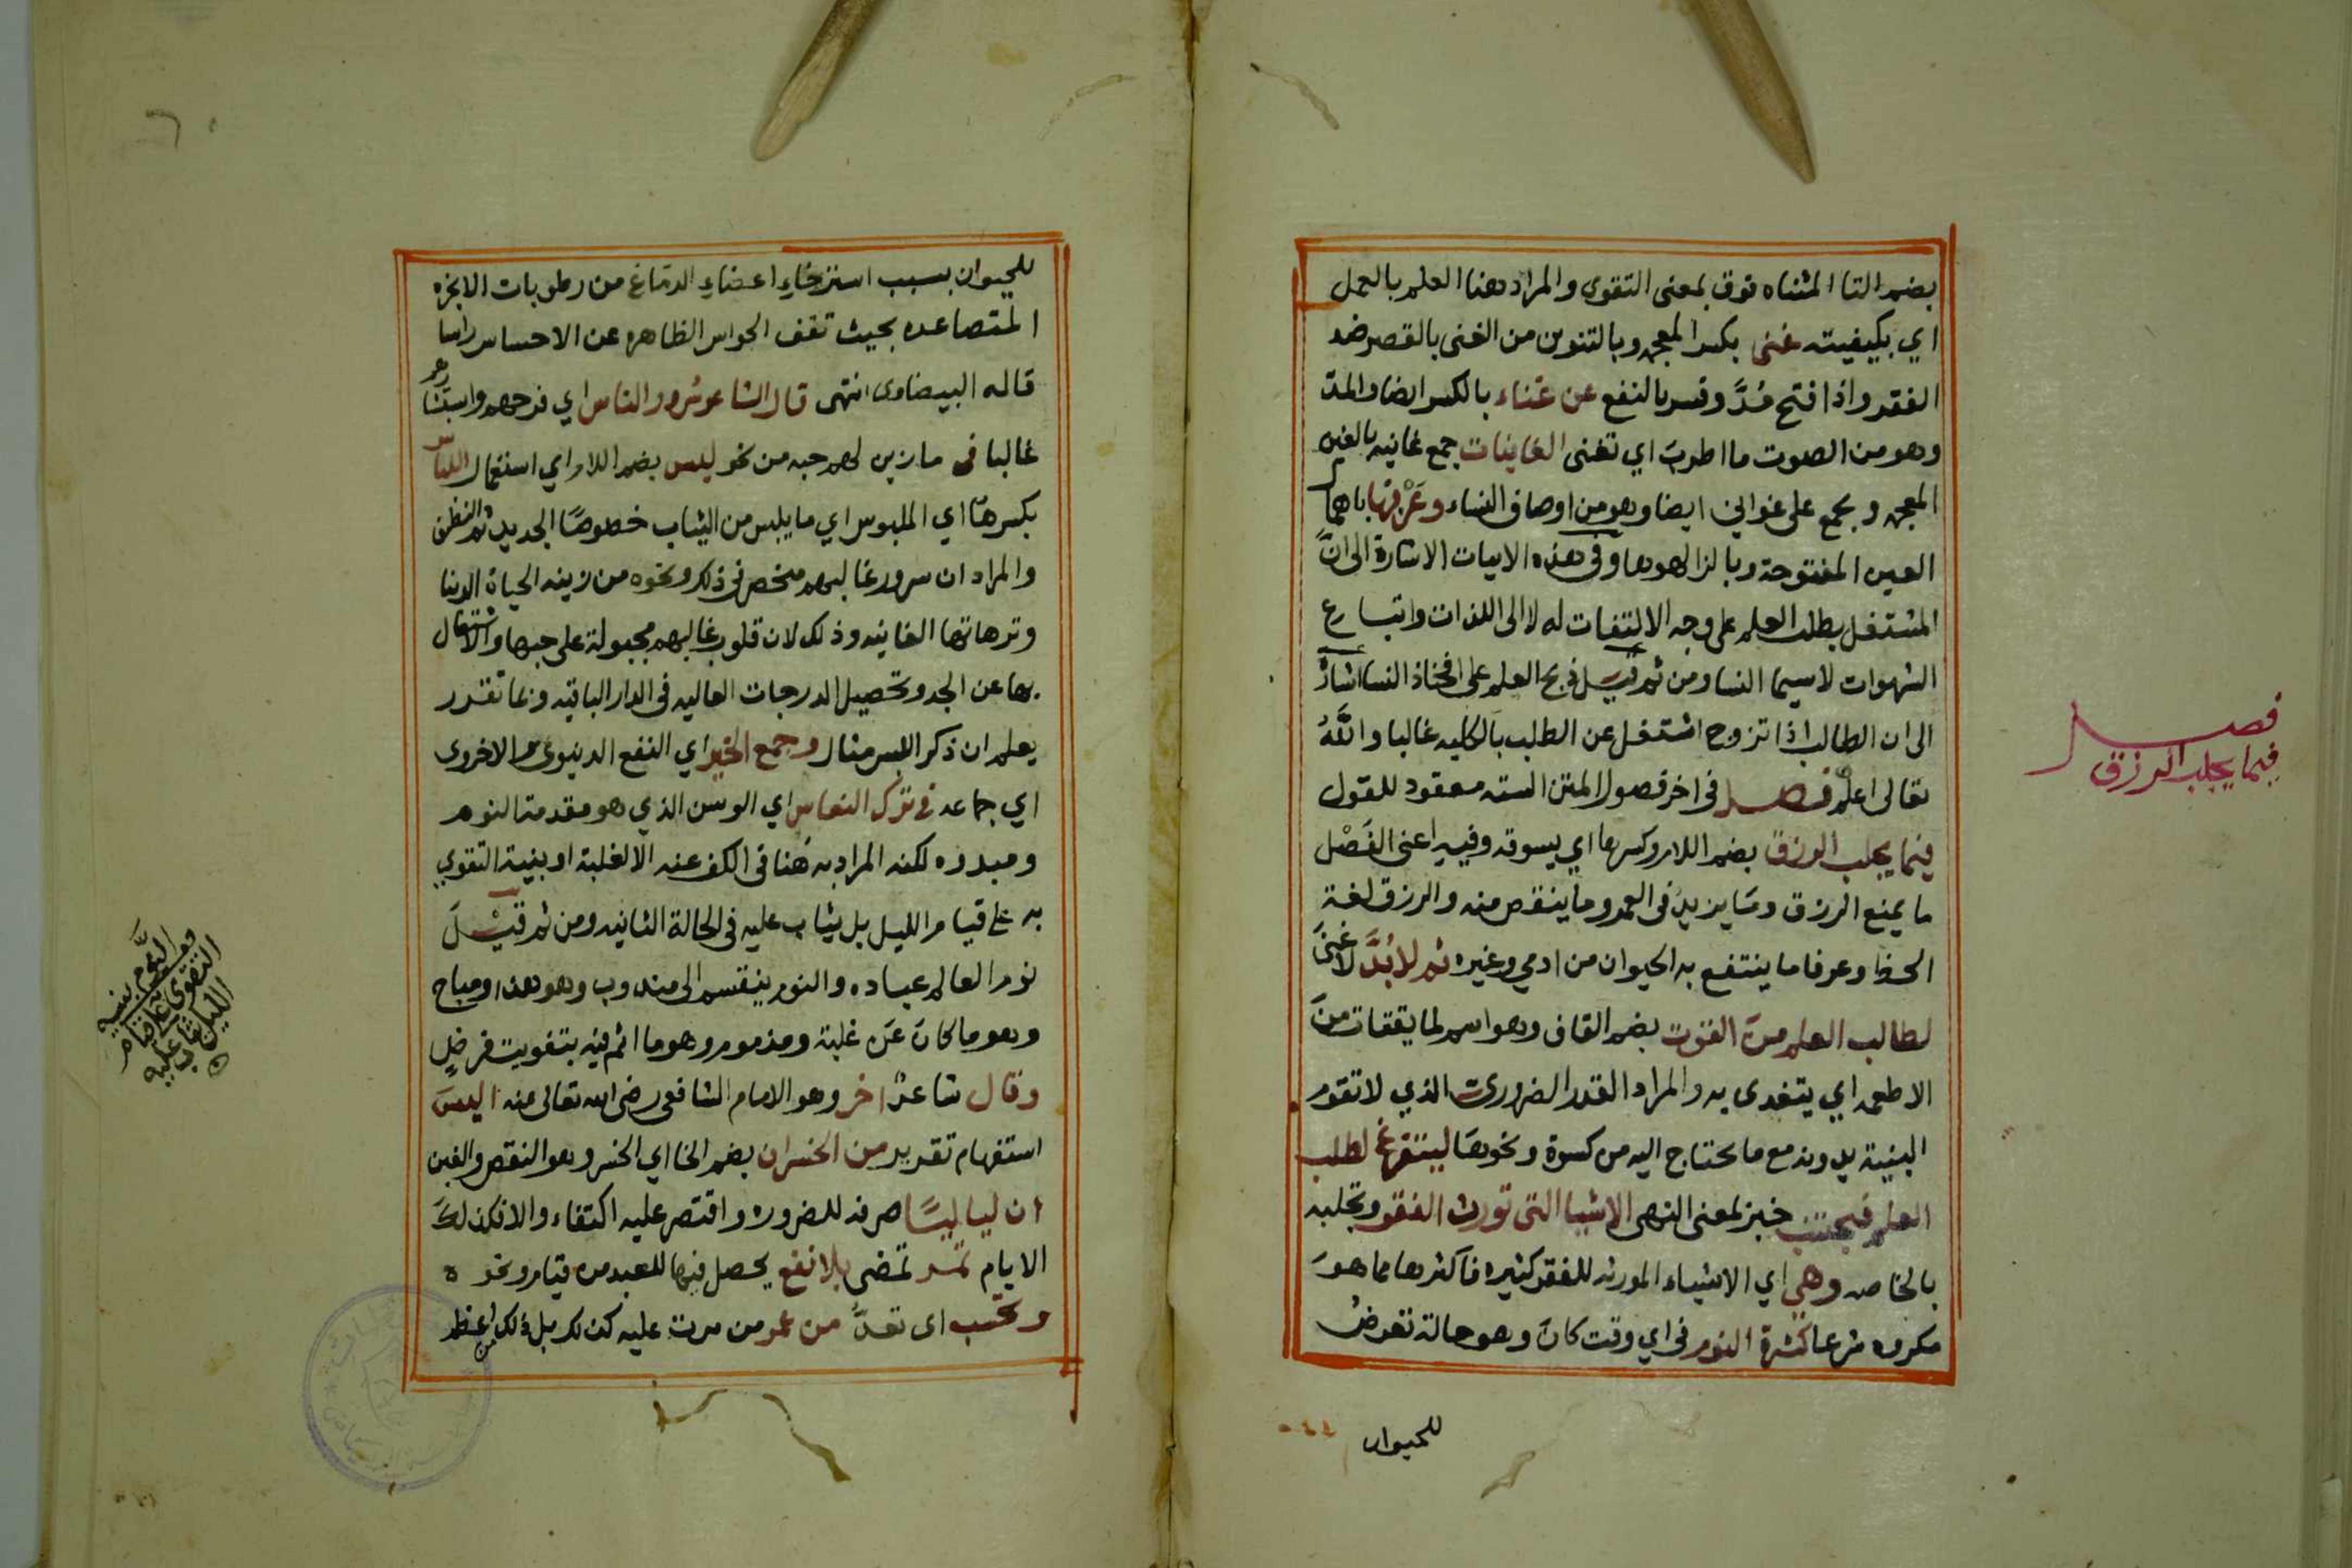 بضم التا المثناه فوق بمعنى التقوى والمراد هنا العلم بالعمل
اي بكيفيته غنى بكسر المعجمه وبالتنوين من الغنى بالقصر ضد
الفقر واذا فتح مُدَّ وفسر بالنفع عن غناء بالكسر ايضا والمد
وهو من الصوت ما اطرب اي تغنى الغانيات جمع غانيه بالغين
المعجمه ويجمع على غواني ايضا وهو من اوصاف النساء وعَزْفها باهمال
العين المفتوحة وبالزا لهوها وفي هذه الابيات الاشارة الى انَّ
المشتغل بطلب العلم على وجه الالتفات له لا الى اللذات واتباع
الشهوات لاسيما النسا ومن ثم قيل ذبح العلم على افخاذ النسا اشارة
الى ان الطالب اذا تزوج اشتغل عن الطلب بالكليه غالبا واللَّهُ
تعالى اعلم فصل في اخر فصول المتن السته معقود للقول
فيما يجلب الرزق بضم اللام وكسرها اي يسوقه وفيه اعنى الفَصْل
ما يمنع الرزق ومَا يزيدُ فى العمر وما ينقص منه والرزق لغة
الحظ وعرفا ما ينتفع به الحيوان من ادمي وغيره ثم لا بُدَّ لا غنَى
لطالب العلم منَ القوت بضم القاف وهو اسم لما يقتات منَ
الاطعمه اي يتغدى به والمراد القدر الضرورى الذي لا تقوم
البنية بدونه مع ما يحتاج اليه من كسوة ونحوهَا ليتفرغ لطلب
العلم فيجتنب خبز بمعنى النهى الاشيا التى تورث الفقر وتجلبه
بالخاصه وهي اي الاشياء المورثه للفقر كثيره فاكثرها مما هوَ
مكروه شرعا كثرة النوم في اي وقت كانَ وهو حالة تعرضُ
للحيوان
فصل
فيما يجلب الرزق
للحيوان بسبب استرخاءِ اعضاءِ الدمَاغ من رطوبات الابخره
المتصاعده بحيث تقف الحواس الظاهره عن الاحساس راسا
قاله البيضاوى انتهى قال الشاعر سُرور الناس اي فرحهم واستبشارهم
غالبا فى ما زين لهم حبه من نحو لبس بضم اللام اي استعمال اللباس
بكسرهَا اي الملبوس اي ما يلبس من الثياب خصوصًا الجديد ثم النظيف
والمراد ان سرور غالبهم منحصر في ذلك ونحوه من زينه الحياة الدنيا
وترهاتها الفانيه وذلك لان قلوب غالبهم مجبولة على حبها والاشتغال
بها عن الجد وتحصيل الدرجات العاليه فى الدار الباقيه وبما تقرر
يعلم ان ذكر اللبس مثال وجمع الخير اي النفع الدنيوى والاخروى
اي جماعه في ترك النعاس اي الوسن الذي هو مقدمة النوم
ومبدوه لكنه المراد به هُنا فى الكف عنه الا لغلبة او بنية التقوي
به على قيام الليل بل يثاب عليه فى الحالة الثانيه ومن ثم قيْلَ
نوم العالم عباده والنوم ينقسم الى مندوب وهو هذا ومباح
وهو ما كانَ عَن غلبة ومذموم وهو ما اثم فيه بتفويت فرضٍ
وقال شاعرٌ اخر وهو الامام الشافعى رضى الله تعالى عنه اليسَ
استفهام تقرير من الخسران بضم الخا اي الخسر وهو النقص والغبن
ان لياليًا صرفه للضروره واقتصر عليه اكتفاء والا فكذلكَ
الايام تمر تمضى بلا نفع يحصل فيها للعبد من قيام ونحوه
وتحسب اى تعدُّ من عمر من مرت عليه كذلك بل ذلك من اعظم
ومع النَّوم بنية
التقوى على قيام
الليل يثاب عليه